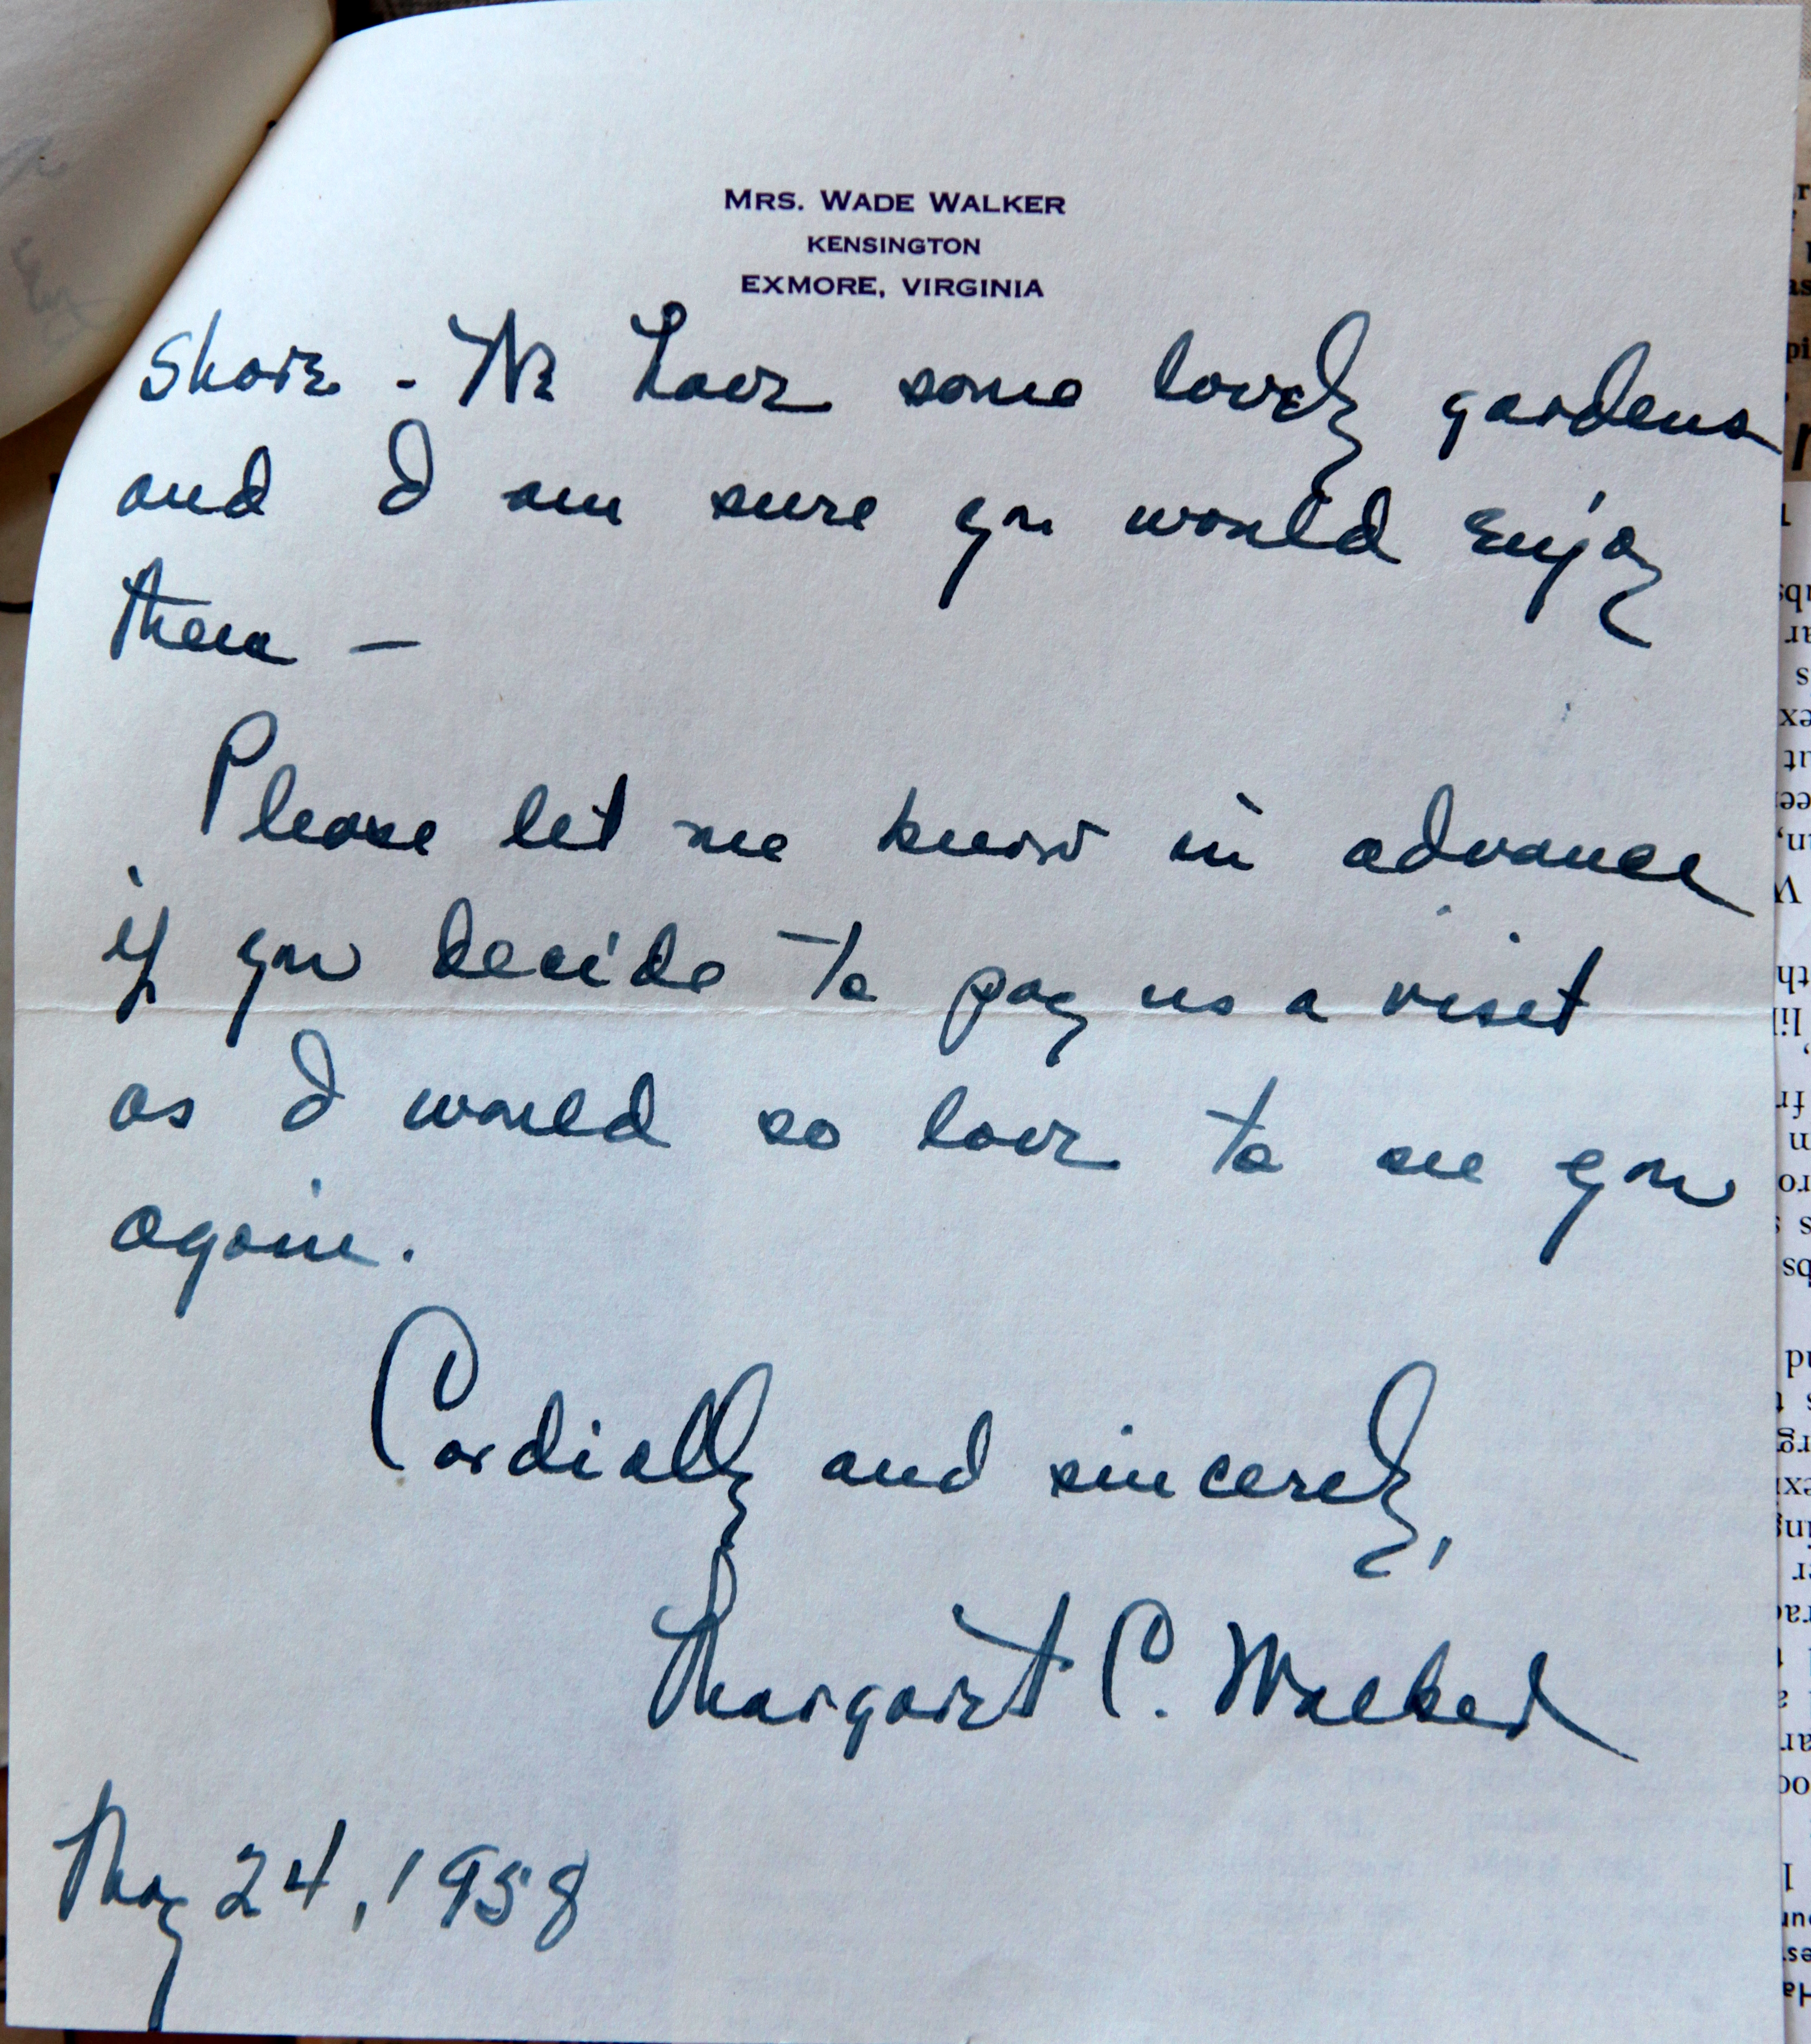 MRS. WADE WALKER
KENSINGTON
EXMORE, VIRGINIA
Shore - We have some lovely gardens
and I am sure you would enjoy
them -
Please let me know in advance
if you decide to pay us a visit
as I would so love to see you
again.
Cordially and sincerely,
Margaret C. Walker
May 24, 1958